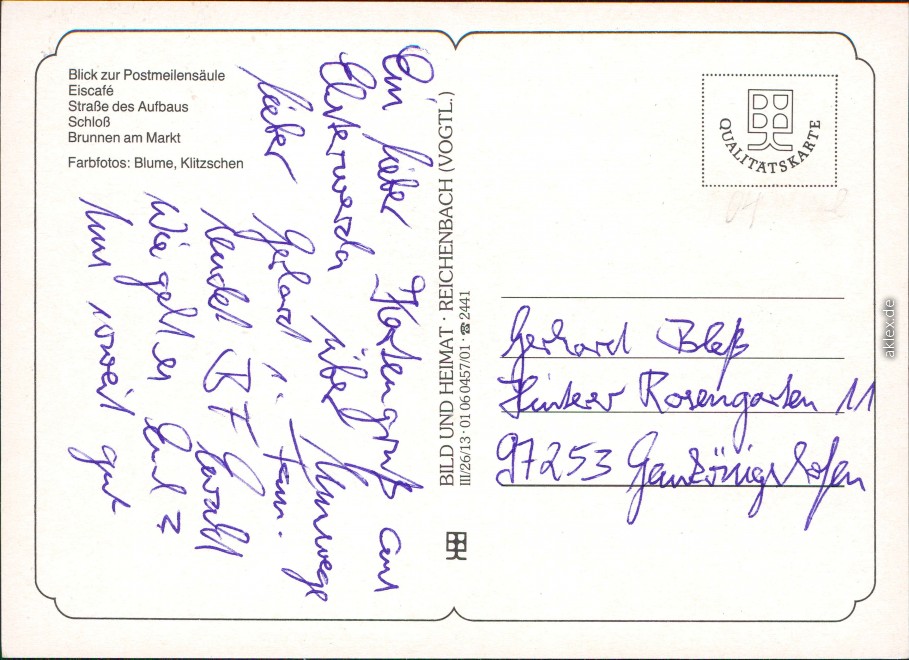 Blick zur Postmeilensäule
Eiscafé
Straße des Aufbaus
Schloß
Brunnen am Markt
Farbfotos: Blume, Klitzschen
Ein lieber Kartengruß aus
Elsterwerda über Umwege
lieber Gerhard i. Fam.
sendet BF Ewald
Wie geht es Euch?
Uns soweit gut
BILD UND HEIMAT · REICHENBACH (VOGTL.)
III/26/13 · 01 06 0457/01 · ☎ 2441
QUALITÄTSKARTE
Gerhard Bleß
Hinterer Rosengarten 11
97253 Gaukönigshofen
aklex.de